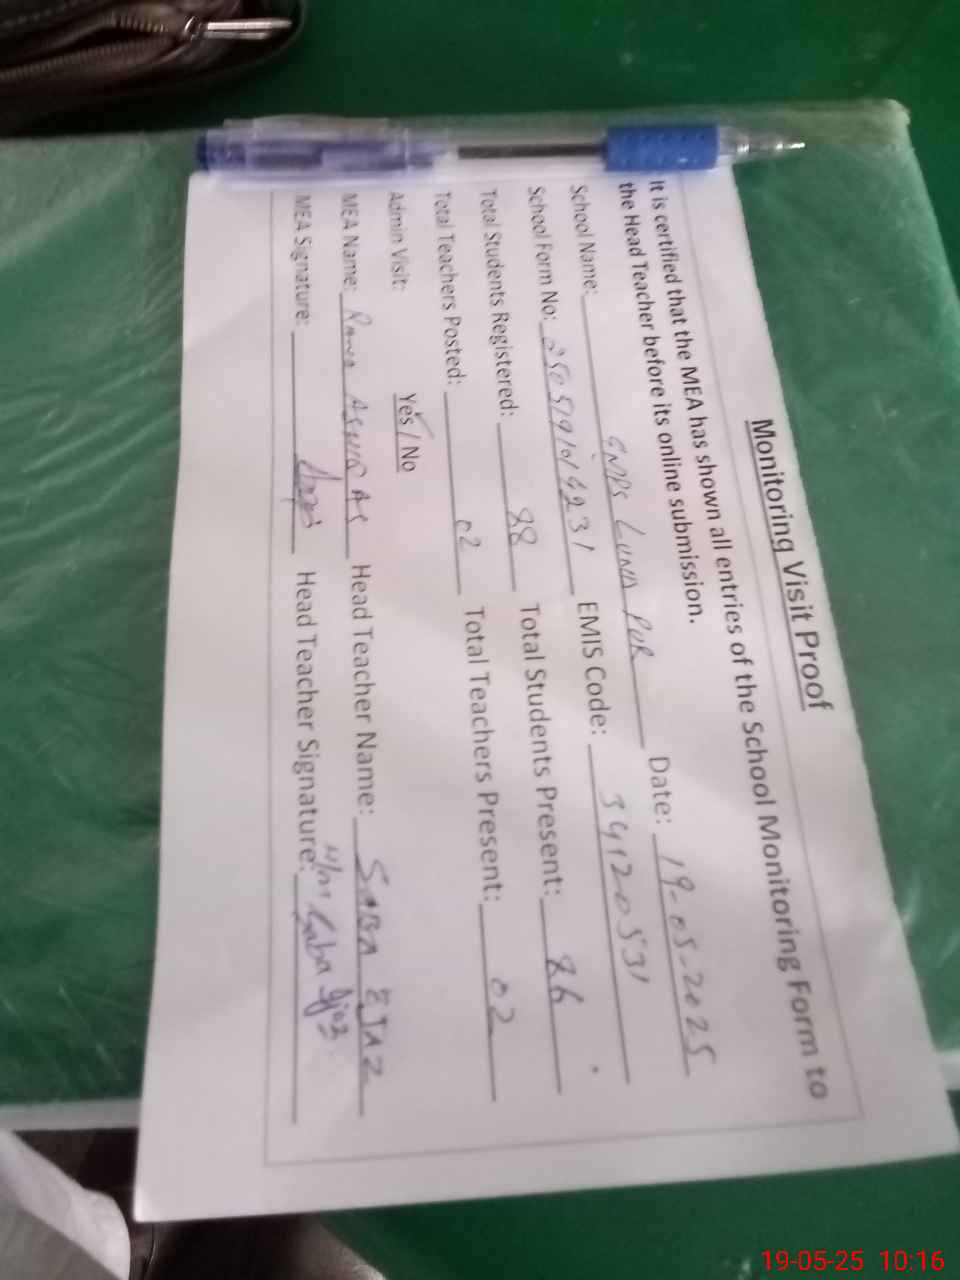 Monitoring Visit Proof
It is certified that the MEA has shown all entries of the School Monitoring Form to
the Head Teacher before its online submission.
School Name: GMPS LUNA PUR Date: 19-05-2025
School Form No: EMIS Code: 34120531
Total Students Registered: 88 Total Students Present: 86
Total Teachers Posted: 02 Total Teachers Present: 02
Admin Visit: Yes / No
MEA Name: Rana Head Teacher Name: SABA EJAZ
MEA Signature: Head Teacher Signature: Saba Ijaz
19-05-25 10:16